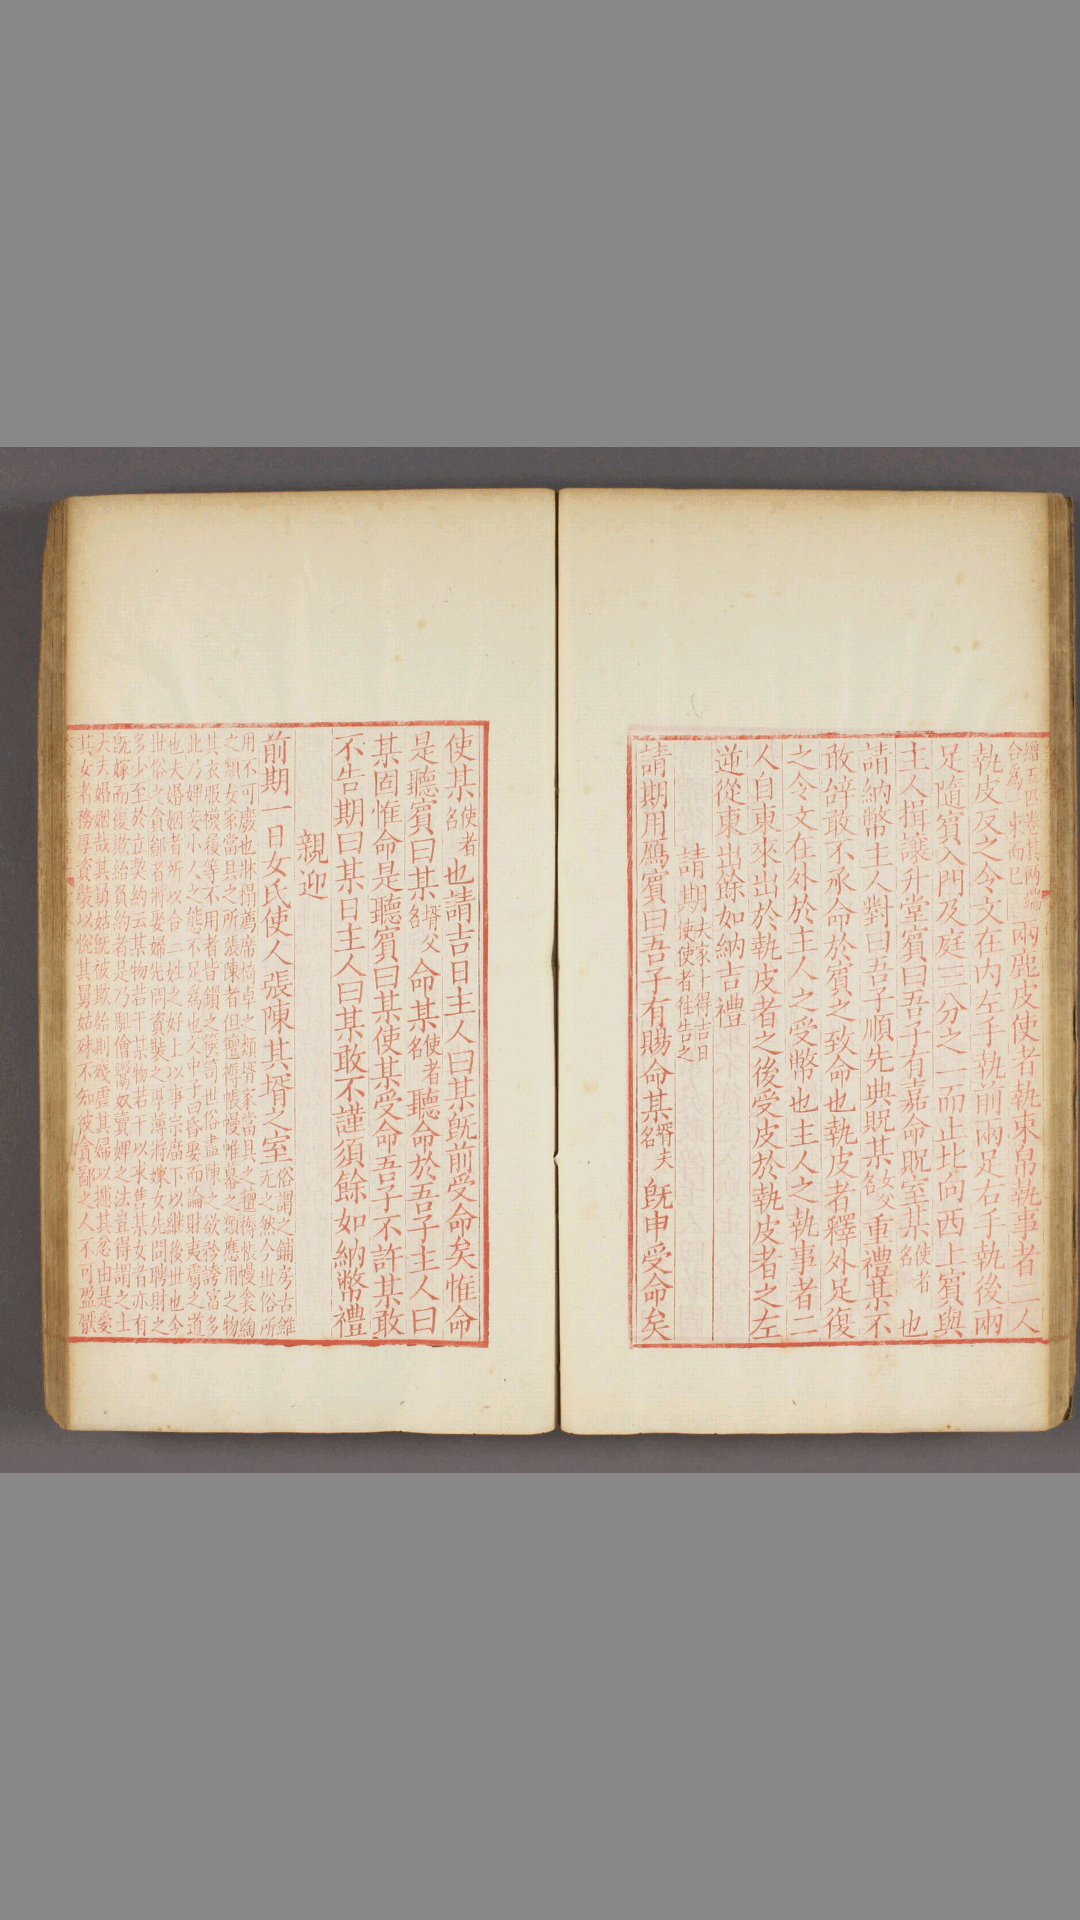 繒五匹卷其兩端
合爲一束而已 兩鹿皮使者執束帛執事者二人
執皮反之令文在内左手執前兩足右手執後兩
足隨賓入門及庭三分之一而止北向西上賓與
主人揖讓升堂賓曰吾子有嘉命貺室某使者名也
請納幣主人對曰吾子順先典貺某女父名重禮某不
敢辝敢不承命於賓之致命也執皮者釋外足復
之令文在外於主人之受幣也主人之執事者二
人自東來出於執皮者之後受皮於執皮者之左
逆從東出餘如納吉禮
請期夫家卜得吉日使使者往告之
請期用鴈賓曰吾子有賜命某壻夫名旣申受命矣
使某使者名也請吉日主人曰某旣前受命矣惟命
是聽賓曰某壻父名命某使者名聽命於吾子主人曰
某固惟命是聽賓曰某使某受命吾子不許某敢
不告期曰某日主人曰某敢不謹須餘如納幣禮
親迎
前期一日女氏使人張陳其壻之室俗謂之鋪房古雖
无之然今世俗所
用不可廢也牀榻薦席椅卓之類壻家當具之氊褥帳幔衾綯
之類女家當具之所張陳者但氊褥帳幔帷幕之類應用之物
其衣服襪履等不用者皆鎖之篋笥世俗盡陳之欲矜誇富多
此乃婢妾小人之態不足爲也文中子曰昏娶而論財夷虜之道
也夫婚姻者所以合二姓之好上以事宗廟下以繼後世也今
世俗之貪鄙者將娶婦先問資裝之厚薄將嫁女先問聘財之
多少至於立契約云某物若干某物若干以求售某女者亦有
旣嫁而復欺紿負約者是乃駔儈鬻奴賣婢之法豈得謂之士
大夫婚姻哉其舅姑旣被欺紿則殘虐其婦以攄其忿由是愛
其女者務厚資裝以悅其舅姑殊不知彼貪鄙之人不可盈厭